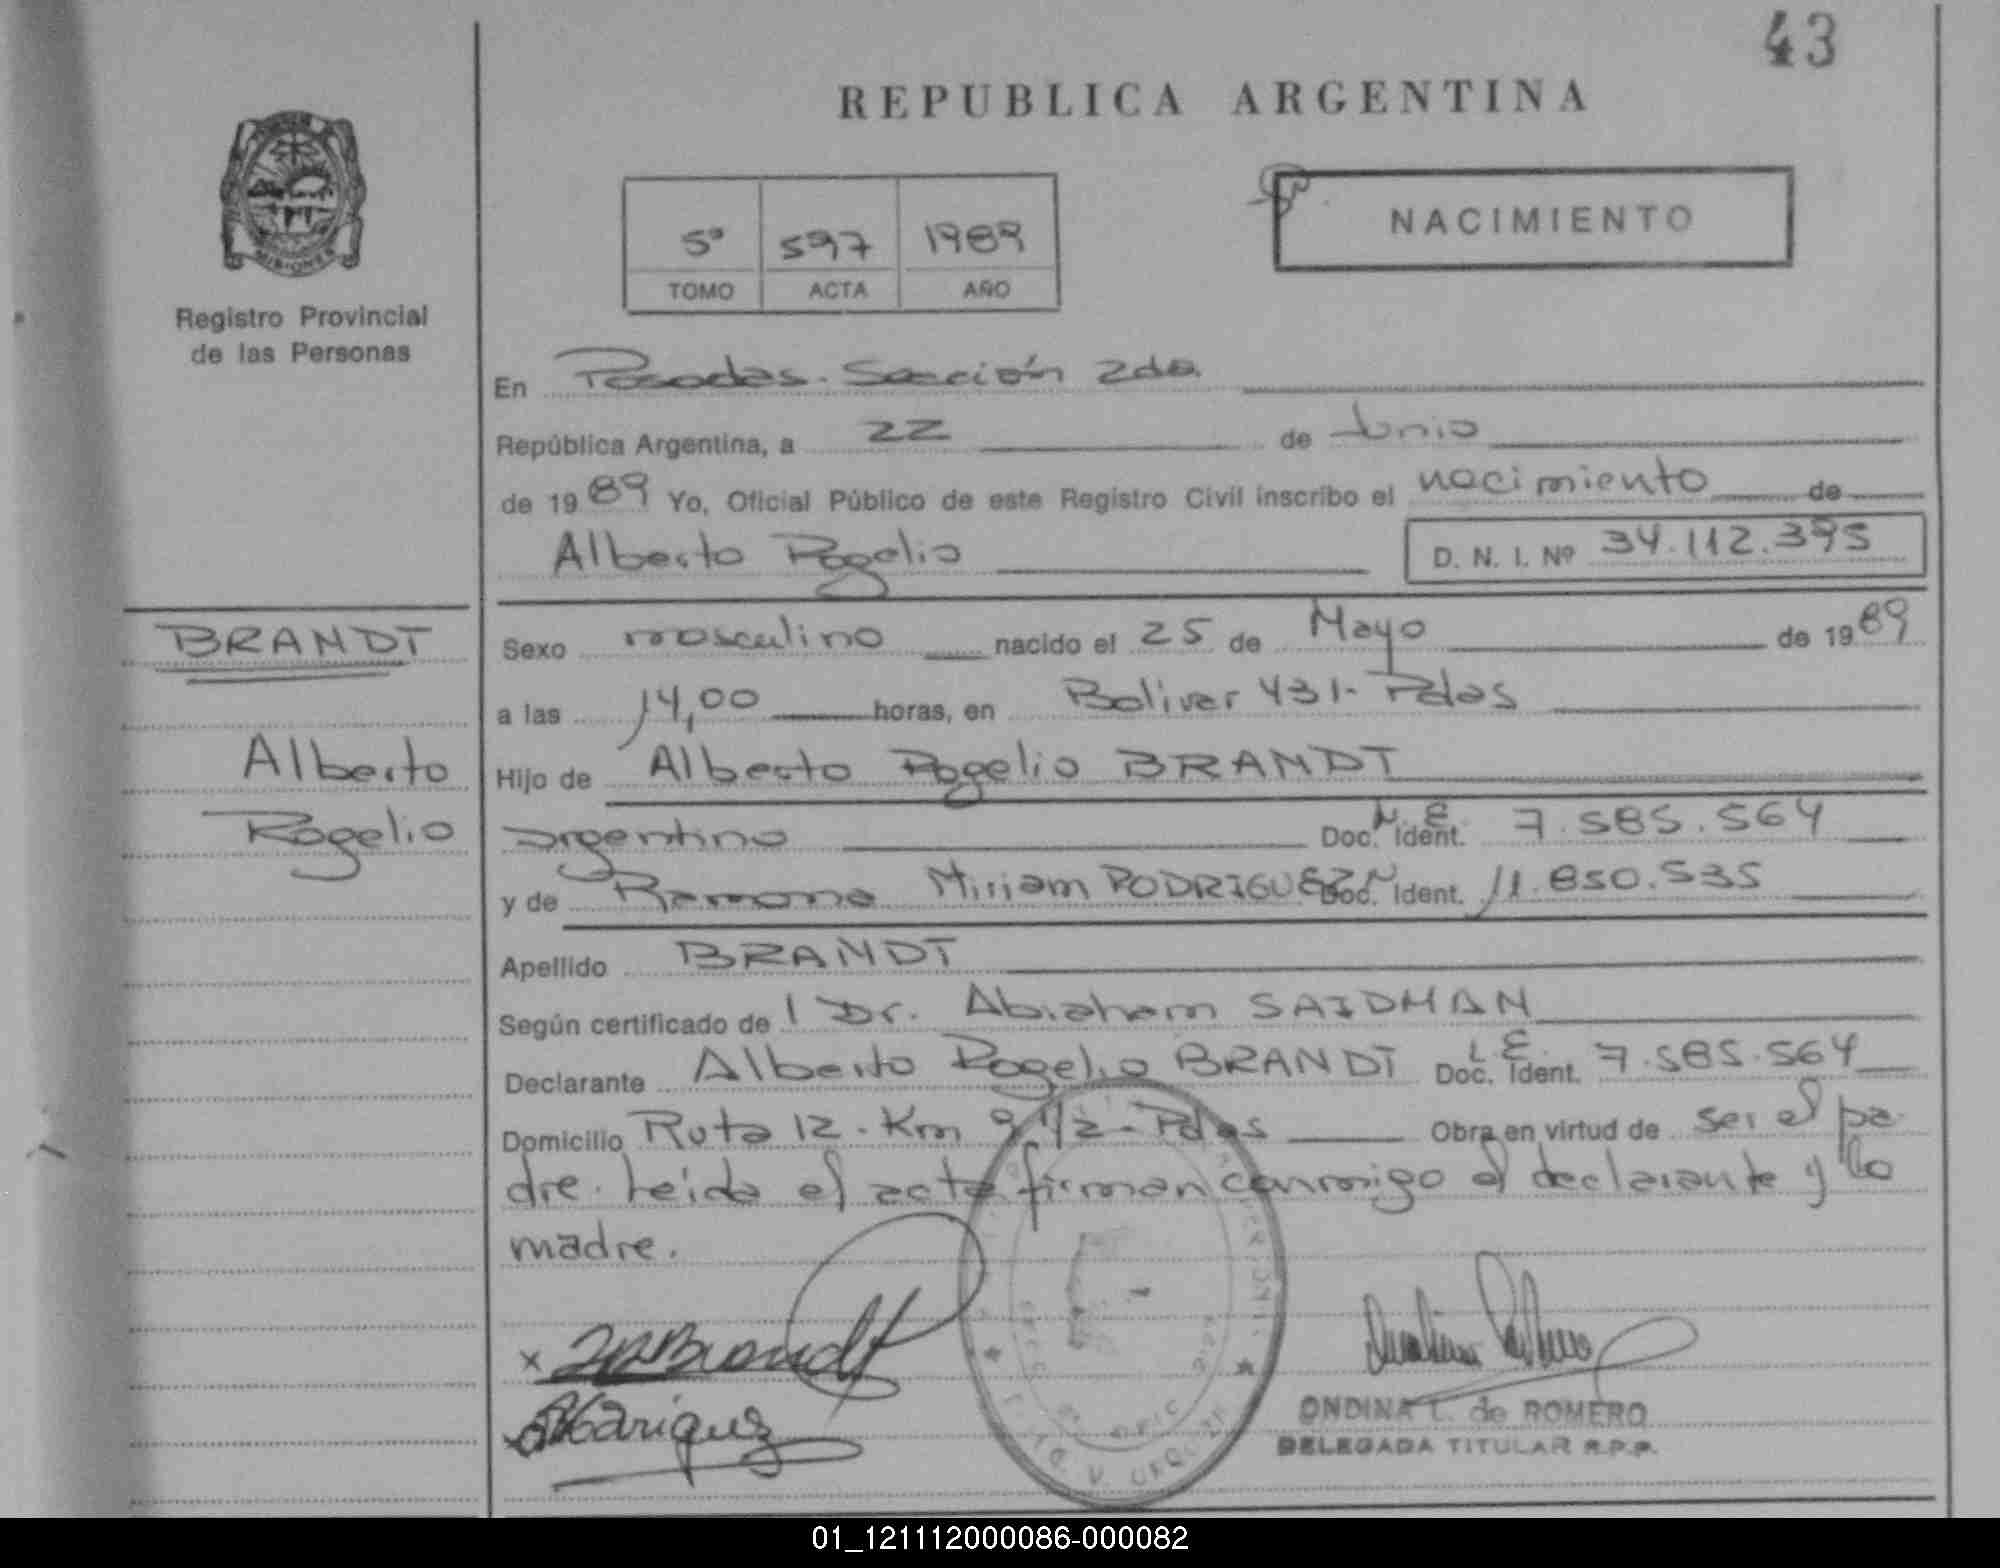 43
REPUBLICA ARGENTINA
MISIONES
Registro Provincial
de las Personas
5º 597 1989
TOMO ACTA AÑO
NACIMIENTO
En Posadas. Sección 2da.
República Argentina, a 22 de Junio
de 1989 Yo, Oficial Público de este Registro Civil inscribo el nacimiento de
Alberto Rogelio D. N. I. Nº 34.112.395
BRANDT
Sexo masculino nacido el 25 de Mayo de 1989
a las 14,00 horas, en Bolivar 431- Pdas
Alberto
Hijo de Alberto Rogelio BRANDT
Rogelio
argentino Doc. Ident. 7.585.564
y de Ramona Miriam RODRIGUEZ Doc. Ident. 11.850.535
Apellido BRANDT
Según certificado de 1 Dr. Abraham SAIDMAN
Declarante Alberto Rogelio BRANDT L.E. Doc. Ident. 7.585.564
Domicilio Ruta 12. Km 9 1/2 - Pdas Obra en virtud de ser el pa-
dre. Leída el acta firman conmigo el declarante y la
madre.
x Brandt
ONDINA L. de ROMERO
DELEGADA TITULAR R.P.P.
01_121112000086-000082